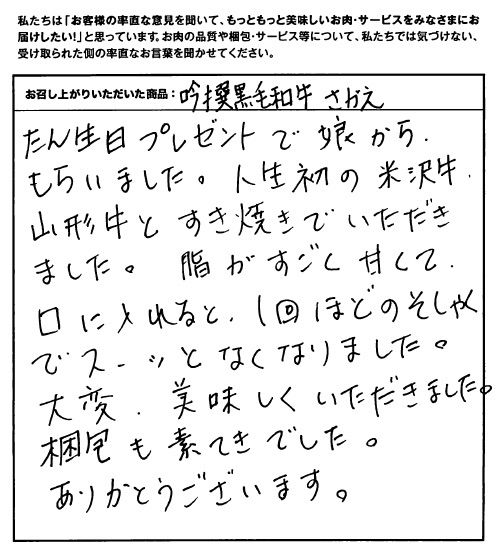 私たちは「お客様の率直な意見を聞いて、もっともっと美味しいお肉・サービスをみなさまにお
届けしたい!」と思っています。お肉の品質や梱包・サービス等について、私たちでは気づけない、
受け取られた側の率直なお言葉を聞かせてください。
お召し上がりいただいた商品：吟撰黒毛和牛 さかえ
たん生日プレゼントで娘から、
もらいました。人生初の米沢牛、
山形牛とすき焼きでいただき
ました。脂がすごく甘くて、
口に入れると、1回ほどのそしゃく
でスーッとなくなりました。
大変、美味しくいただきました。
梱包も素てきでした。
ありがとうございます。